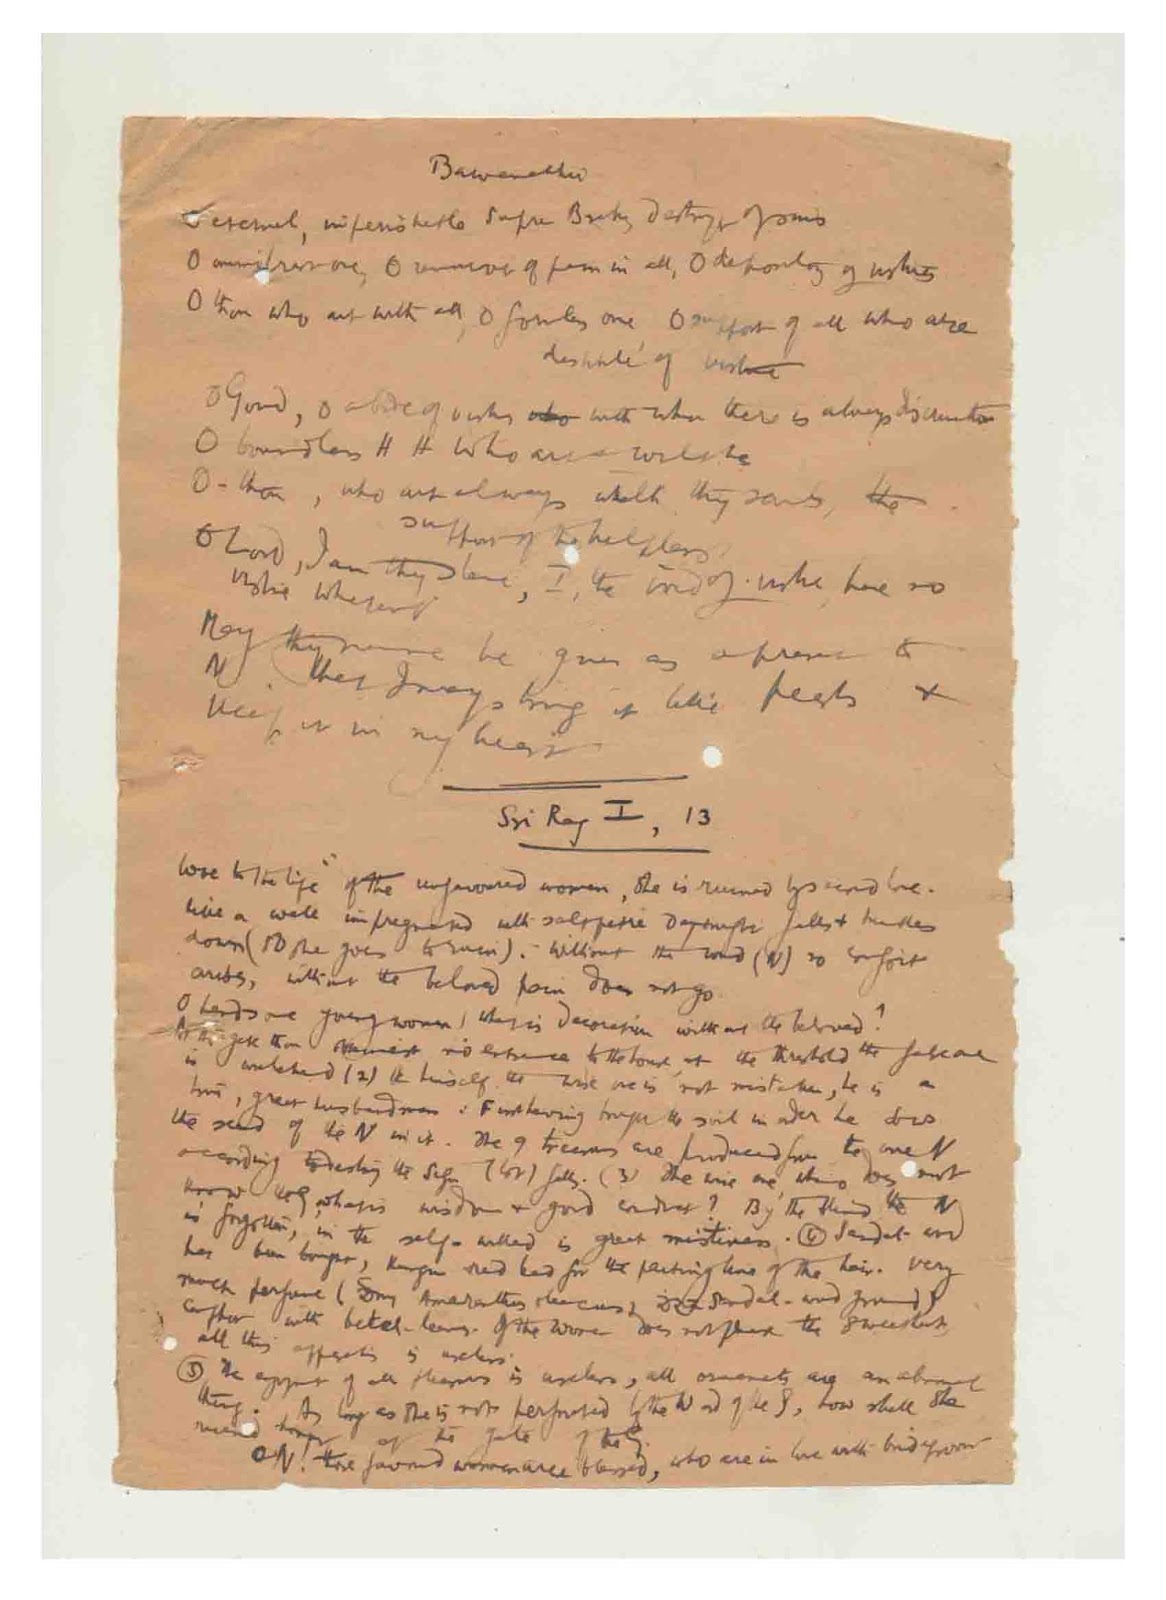 Bawanakhri
O eternal, imperishable Supre Brahm, Destroyer of sins
O omnipresent one, O remover of pain in all, O depository of virtues
O thou who art with all, O formless one O support of all who are
destitute of virtue
O Govind, O abode of virtues who with whom there is always discrimination
O boundless H H who art & wilt be
O thou, who art always with thy saints, the
support of the helpless
O Lord, I am thy slave, I, the void of virtue, have no
virtue whatever
May thy name be given as a present to
N that I may string it like pearls &
Keep it in my heart
Sri Rag I, 13
love to the life" of the unfavoured women, she is ruined by second love.
like a wall impregnated with saltpetre Day & night falls & tumbles
down (so she goes to ruin). Without the word (N) no comfort
arises, without the beloved pain does not go
O handsome young woman! what is decoration without the beloved?
At the gate thou no entrance to the house, at the threshold the false one
is (2) He himself the wise one is not mistaken, he is a
true, great husbandman. First having the soil in order he sows
the seed of the N in it. The 9 treasures are produced from the one N
according to destiny the Sign (lot) falls. (3) The wise one, who does not
know the G, what is wisdom & good conduct? By the blind the N
is forgotten, in the self-willed is great mistiness. (4) Sandal-wood
has been bought, red lead for the parting line of the hair. Very
much perfume ( Amaranthus oleaceus) Sandal-wood ground &
camphor with betel-leaves. If the woman does not please the Sweetheart
all this is useless.
(5) The enjoyment of all pleasures is useless, all ornaments are an
thing. As long as she is not perforated by the Word of the G, how shall she
receive honour at the gate of the G.
O N! those favoured women are blessed, who are in love with bridegroom